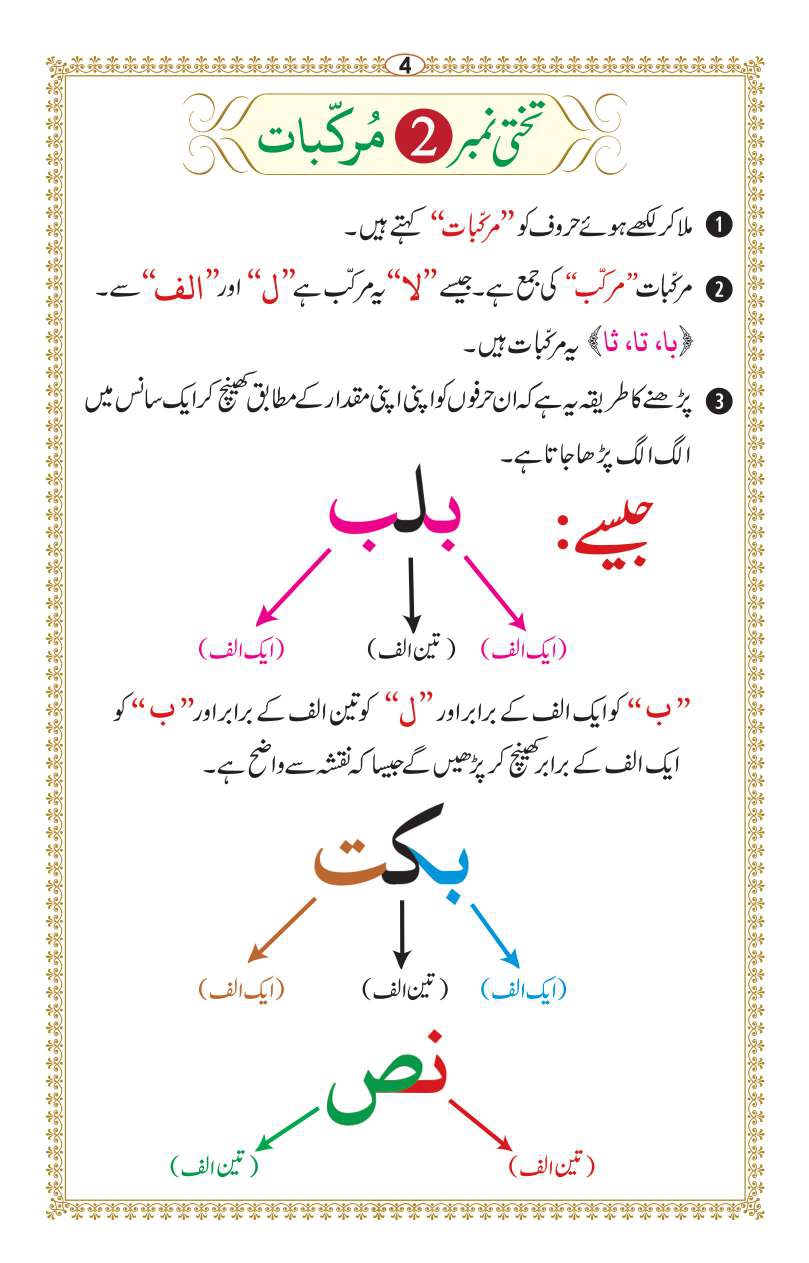 4
تختی نمبر 2 مُرکّبات
1 ملا کر لکھے ہوئے حروف کو ”مرکّبات“ کہتے ہیں۔
2 مرکّبات ”مرکّب“ کی جمع ہے۔ جیسے ”لا“ یہ مرکّب ہے ”ل“ اور ”الف“ سے۔
﴿با، تا، ثا﴾ یہ مرکّبات ہیں۔
3 پڑھنے کا طریقہ یہ ہے کہ ان حرفوں کو اپنی اپنی مقدار کے مطابق کھینچ کر ایک سانس میں
الگ الگ پڑھا جاتا ہے۔
جیسے: بلب
(ایک الف) (تین الف) (ایک الف)
”ب“ کو ایک الف کے برابر اور ”ل“ کو تین الف کے برابر اور ”ب“ کو
ایک الف کے برابر کھینچ کر پڑھیں گے جیسا کہ نقشہ سے واضح ہے۔
بکت
(ایک الف) (تین الف) (ایک الف)
نص
(تین الف) (تین الف)